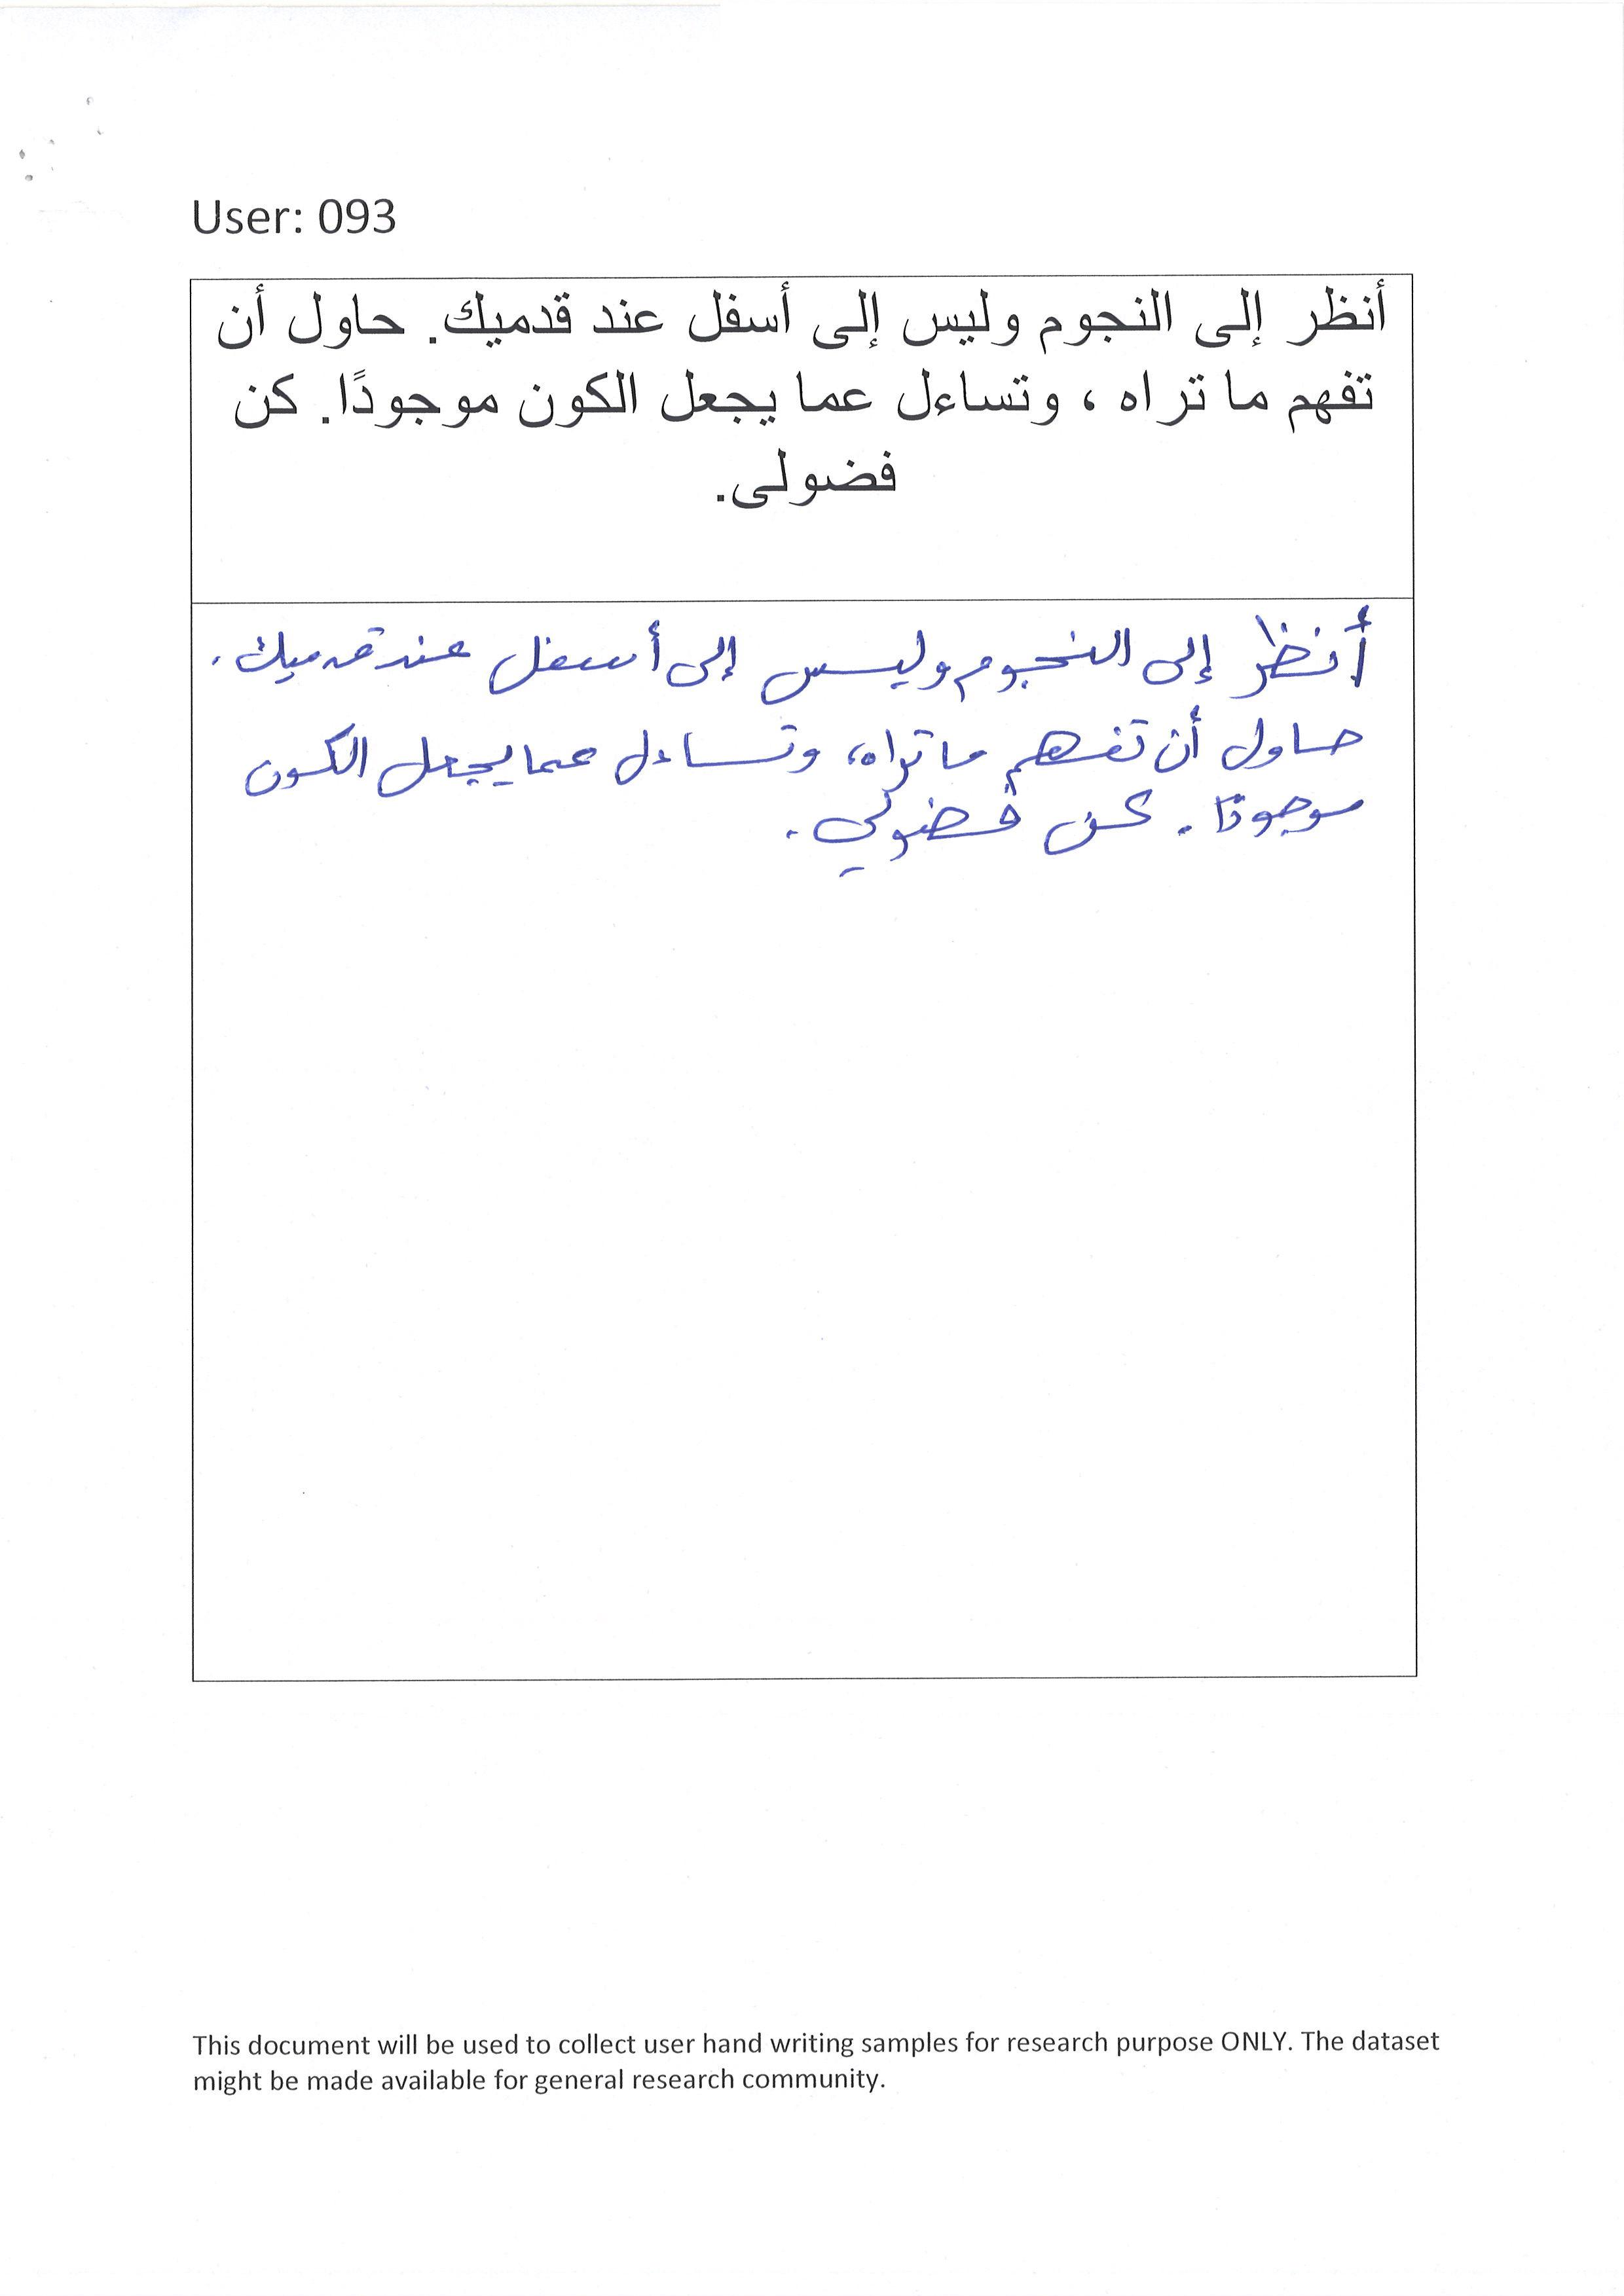 User: 093
أنظر إلى النجوم وليس إلى أسفل عند قدميك. حاول أن
تفهم ما تراه ، وتساءل عما يجعل الكون موجودًا. كن
فضولى.
أنظر إلى النجوم وليس إلى أسفل عند قدميك.
حاول أن تفهم ما تراه، وتساءل عما يجعل الكون
موجودًا. كن فضولي.
This document will be used to collect user hand writing samples for research purpose ONLY. The dataset
might be made available for general research community.